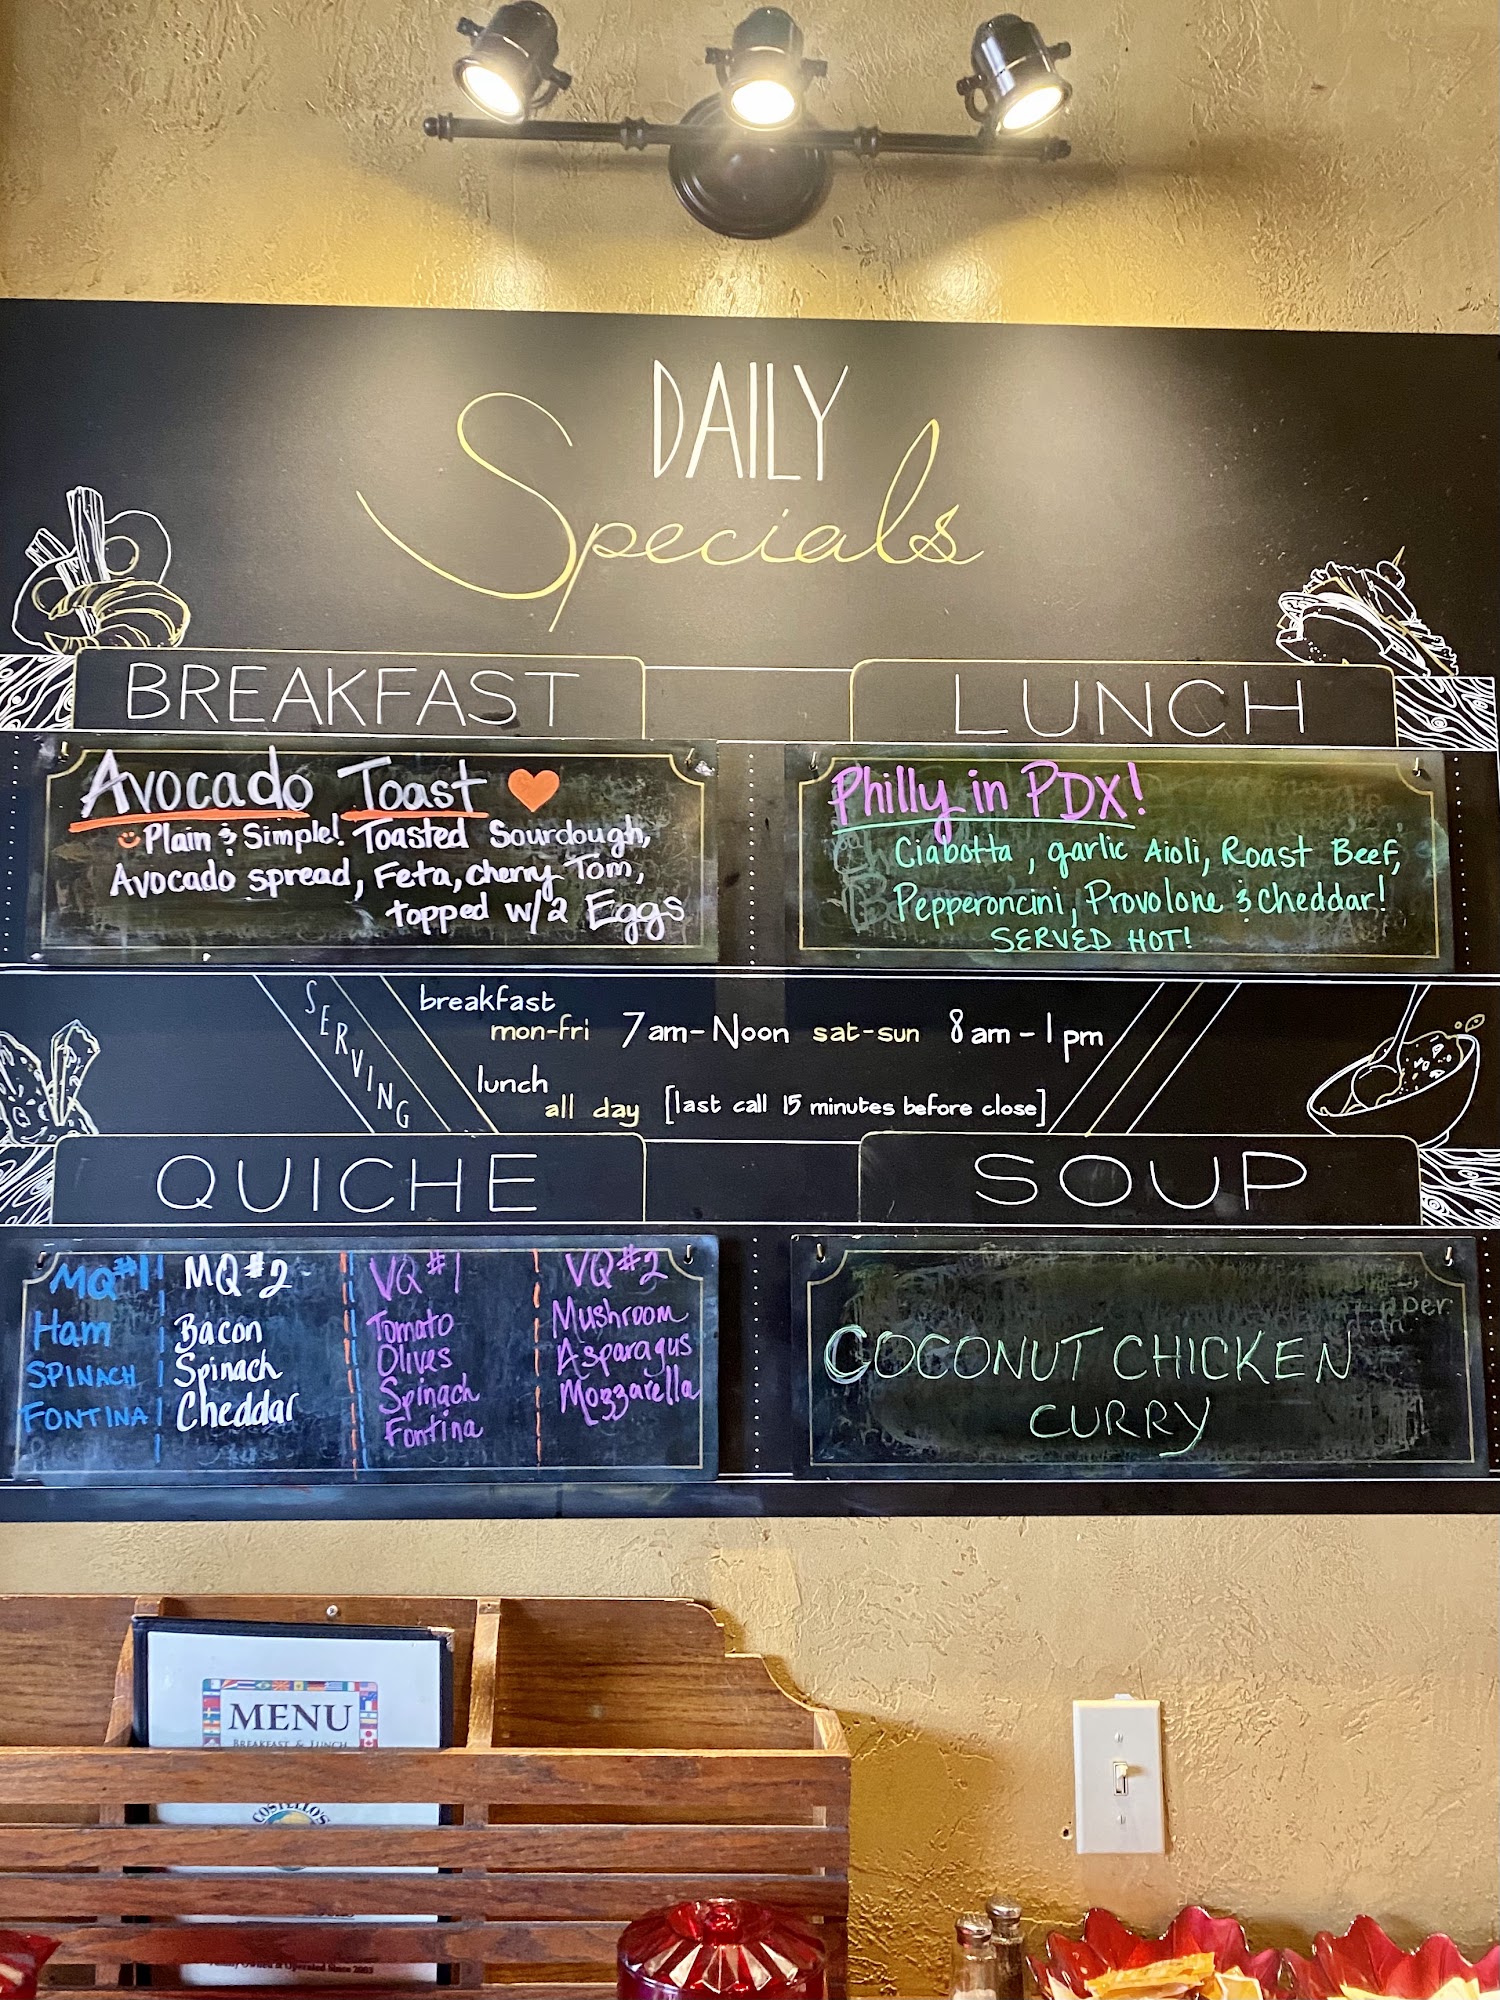 DAILY
Specials
BREAKFAST
Avocado Toast
Plain & Simple! Toasted Sourdough,
Avocado spread, Feta, cherry Tom,
topped w/2 Eggs
LUNCH
Philly in PDX!
Ciabotta, garlic Aioli, Roast Beef,
Pepperoncini, Provolone & Cheddar!
SERVED HOT!
SERVING
breakfast
mon-fri 7am-Noon sat-sun 8am-1pm
lunch
all day [last call 15 minutes before close]
QUICHE
MQ#1
Ham
SPINACH
FONTINA
MQ#2
Bacon
Spinach
Cheddar
VQ#1
Tomato
Olives
Spinach
Fontina
VQ#2
Mushroom
Asparagus
Mozzarella
SOUP
COCONUT CHICKEN
CURRY
MENU
BREAKFAST & LUNCH
COSTELLO'S